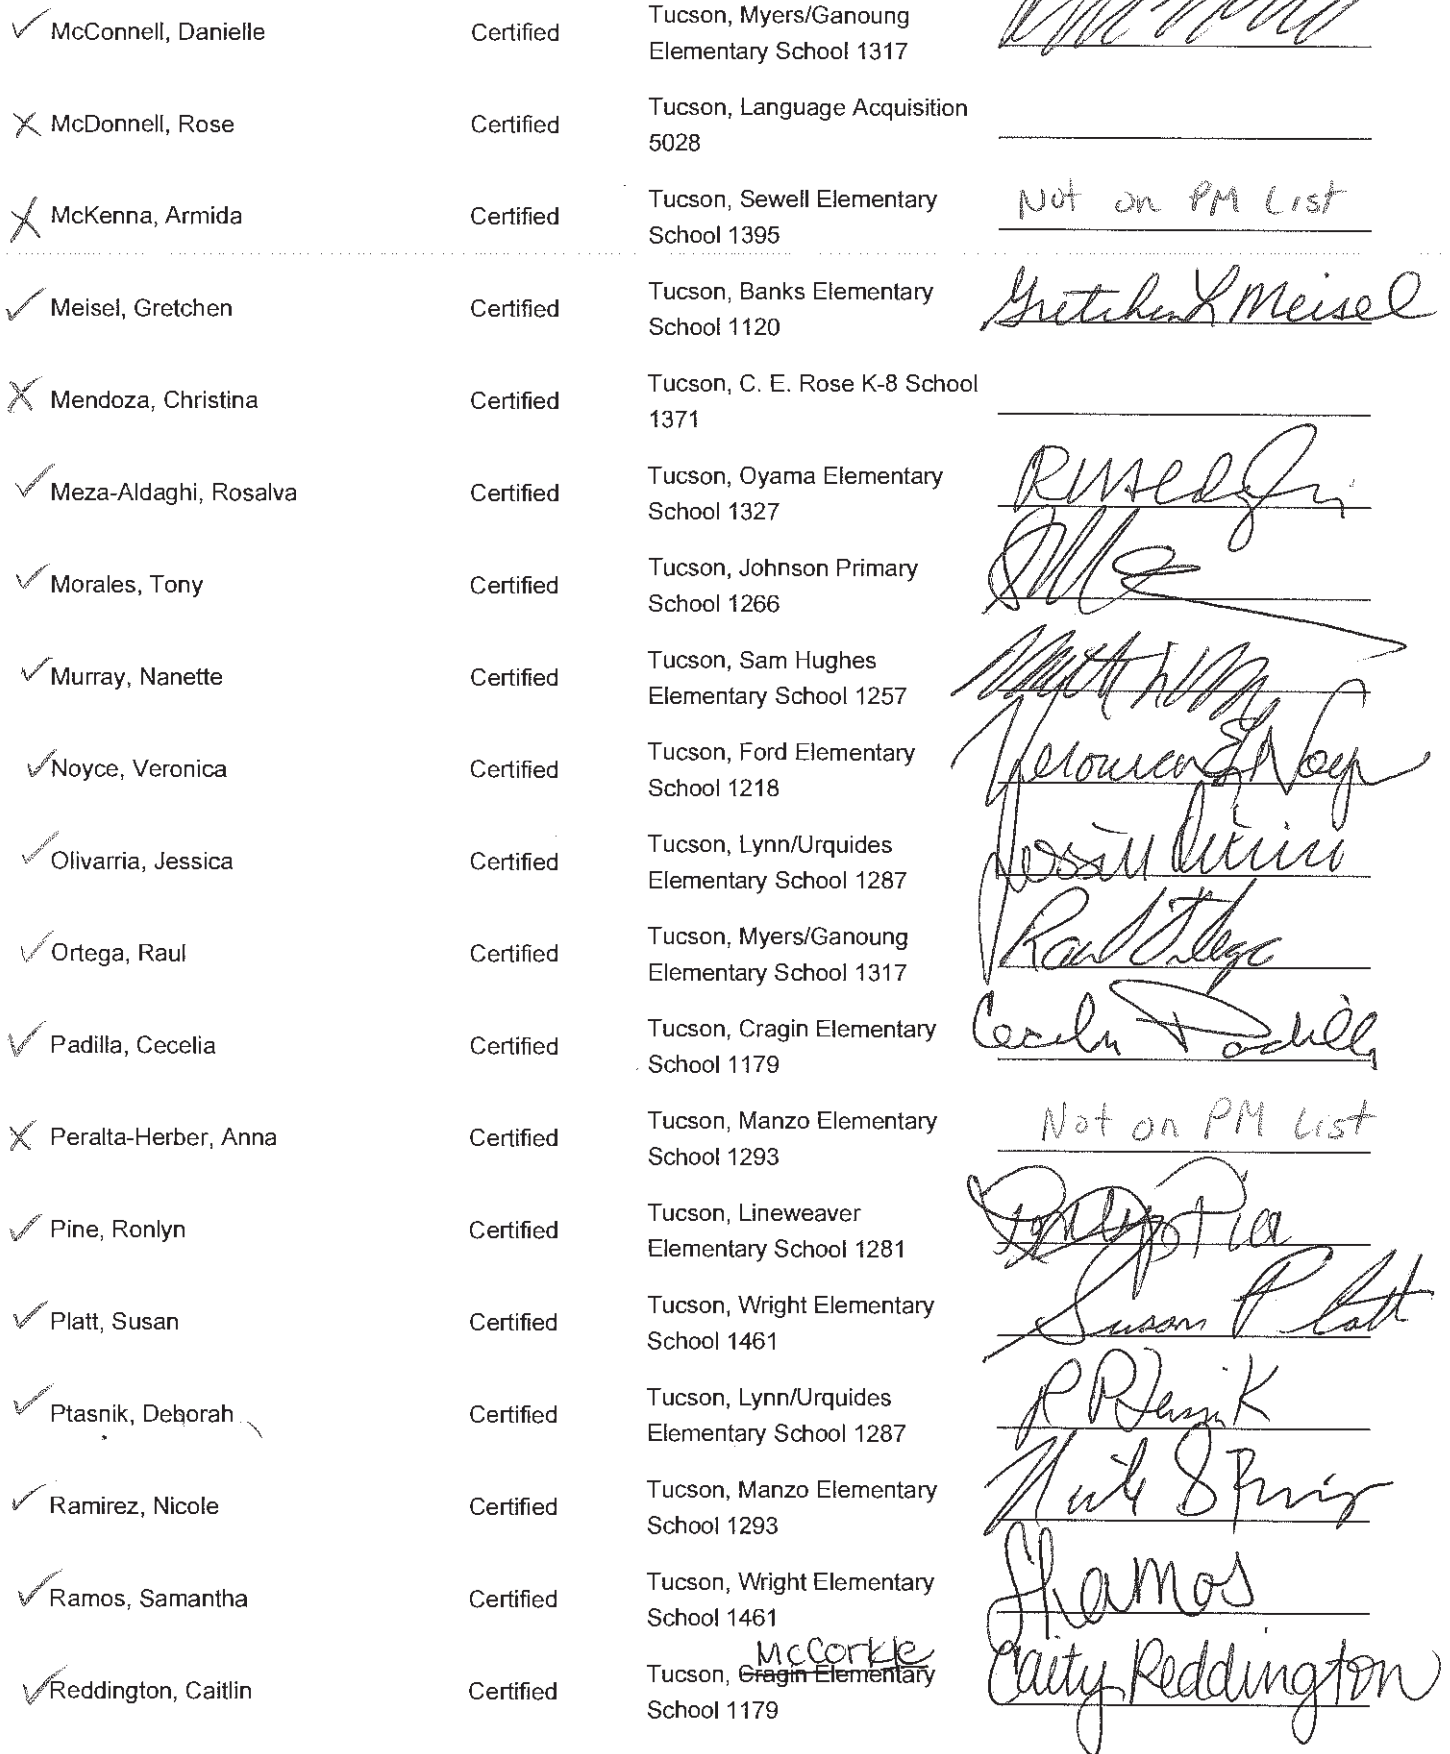 McConnell, Danielle Certified Tucson, Myers/Ganoung
Elementary School 1317
McDonnell, Rose Certified Tucson, Language Acquisition
5028
McKenna, Armida Certified Tucson, Sewell Elementary Not on PM List
School 1395
Meisel, Gretchen Certified Tucson, Banks Elementary Gretchen L Meisel
School 1120
Mendoza, Christina Certified Tucson, C. E. Rose K-8 School
1371
Meza-Aldaghi, Rosalva Certified Tucson, Oyama Elementary
School 1327
Morales, Tony Certified Tucson, Johnson Primary
School 1266
Murray, Nanette Certified Tucson, Sam Hughes
Elementary School 1257
Noyce, Veronica Certified Tucson, Ford Elementary Veronica E Noyce
School 1218
Olivarria, Jessica Certified Tucson, Lynn/Urquides
Elementary School 1287
Ortega, Raul Certified Tucson, Myers/Ganoung Raul Ortega
Elementary School 1317
Padilla, Cecelia Certified Tucson, Cragin Elementary Cecelia Padilla
School 1179
Peralta-Herber, Anna Certified Tucson, Manzo Elementary Not on PM List
School 1293
Pine, Ronlyn Certified Tucson, Lineweaver
Elementary School 1281
Platt, Susan Certified Tucson, Wright Elementary Susan Platt
School 1461
Ptasnik, Deborah Certified Tucson, Lynn/Urquides
Elementary School 1287
Ramirez, Nicole Certified Tucson, Manzo Elementary
School 1293
Ramos, Samantha Certified Tucson, Wright Elementary SRamos
School 1461
McCorkle
Reddington, Caitlin Certified Tucson, Cragin Elementary Caity Reddington
School 1179